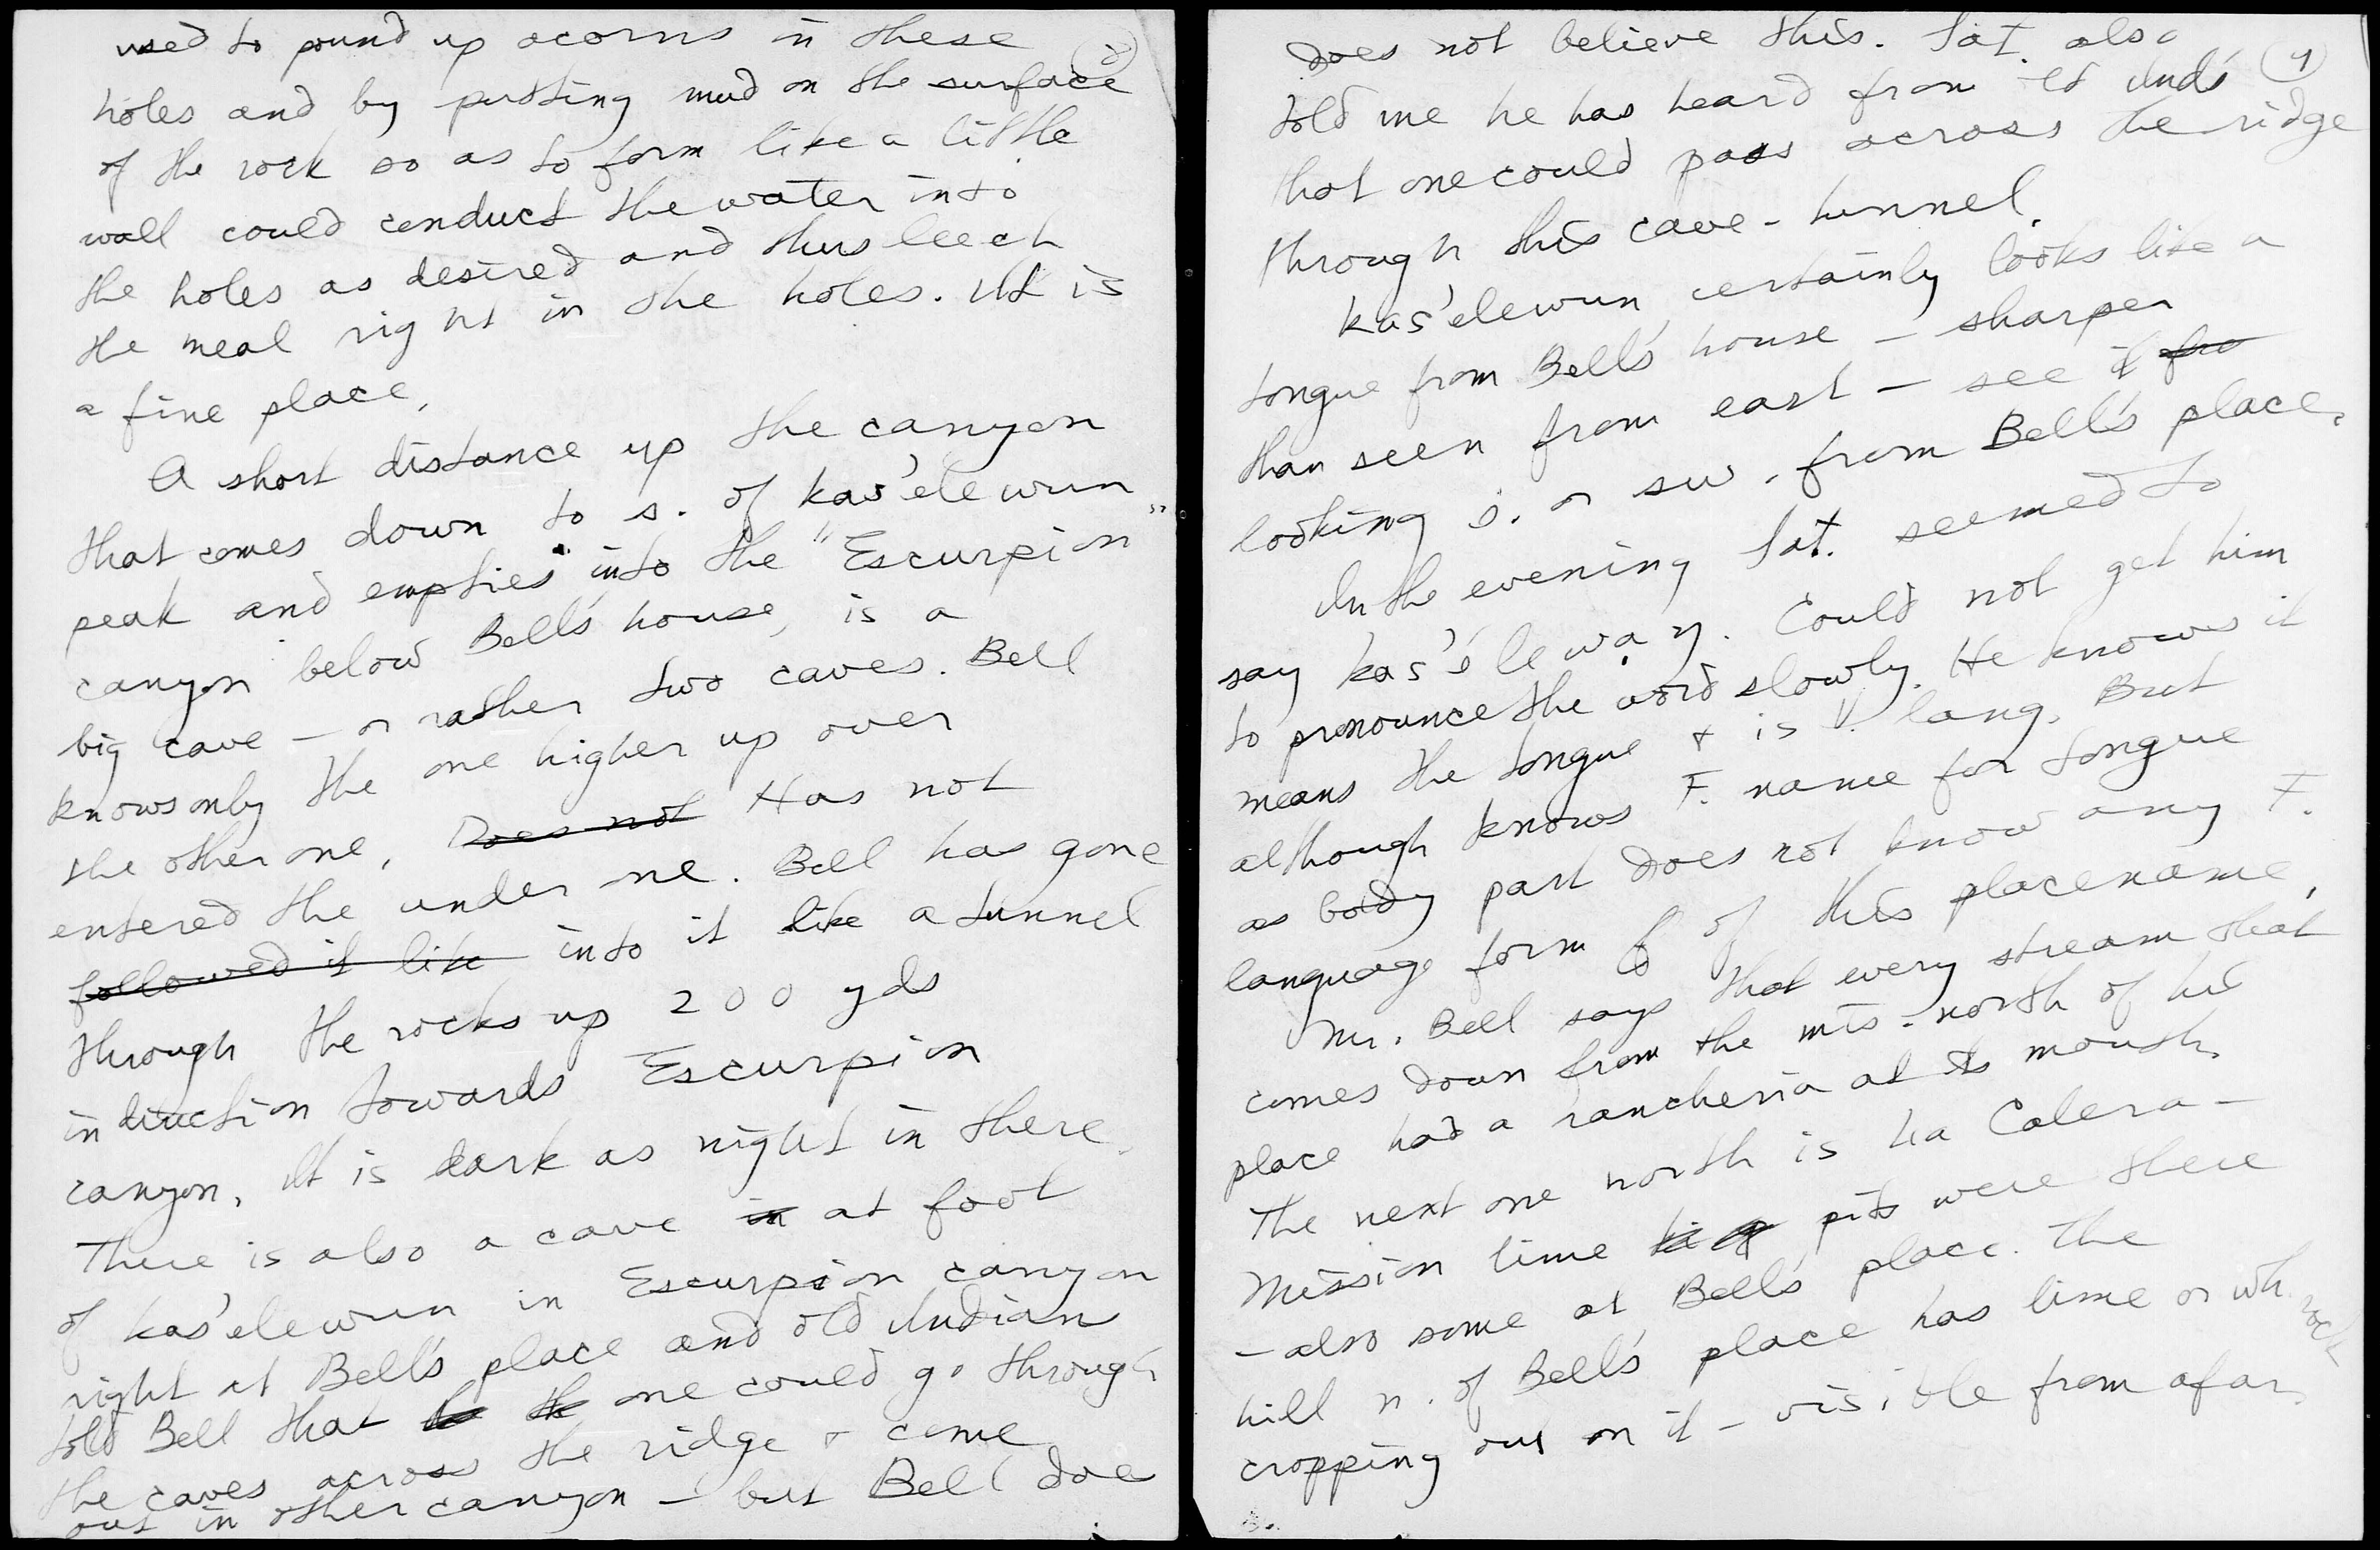 used to pound up acorns in these
holes and by putting mud on the surface
of the rock so as to form like a little
wall could conduct the water into
the holes as desired and thus leech
the meal right in the holes. It is
a fine place.
A short distance up the canyon
that comes down to s. of kas'elewun
peak and empties into the "Escurpion"
canyon below Bell's house, is a
big cave – or rather two caves. Bell
knows only the one higher up over
the other one. Does not Has not
entered the under one. Bell has gone
followed it like into it like a tunnel
through the rocks up 200 yds
in direction towards Escurpion
canyon. It is dark as night in there.
There is also a cave in at foot
of kas'elewun in Escurpion canyon
right at Bell's place and old Indian
told Bell that one could go through
the caves across the ridge + come
out in other canyon – but Bell doe
does not believe this. Sat. also 4
told me he has heard from Inds
that one could pass across the ridge
through this cave-tunnel.
kas'elewun certainly looks like a
tongue from Bell's house – sharper
than seen from east – see it fro
looking s. or sw. from Bell's place.
In the evening Sat. seemed to
say kas'élewạŋ. Could not get him
to pronounce the word slowly. He knows it
means the tongue + is V. lang. But
although knows F. name for tongue
as body part does not know any F.
language form of this placename.
Mr. Bell says that every stream that
comes down from the mts. north of his
place had a rancheria at its mouth.
The next one north is La Calera –
Mission lime pits were there
– also some at Bell's place. The
hill n. of Bell's place has lime or wh. rock
cropping out on it – visible from afar.